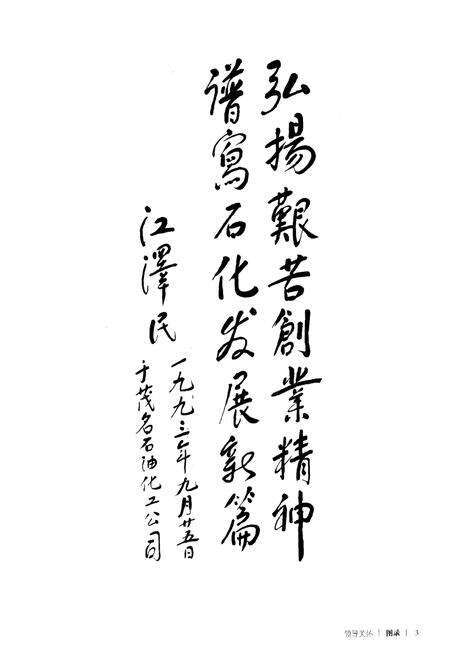 弘揚艱苦創業精神
譜寫石化发展新篇
江澤民
一九九三年九月廿五日
于茂名石油化工公司
领导关怀 | 图录 | 3